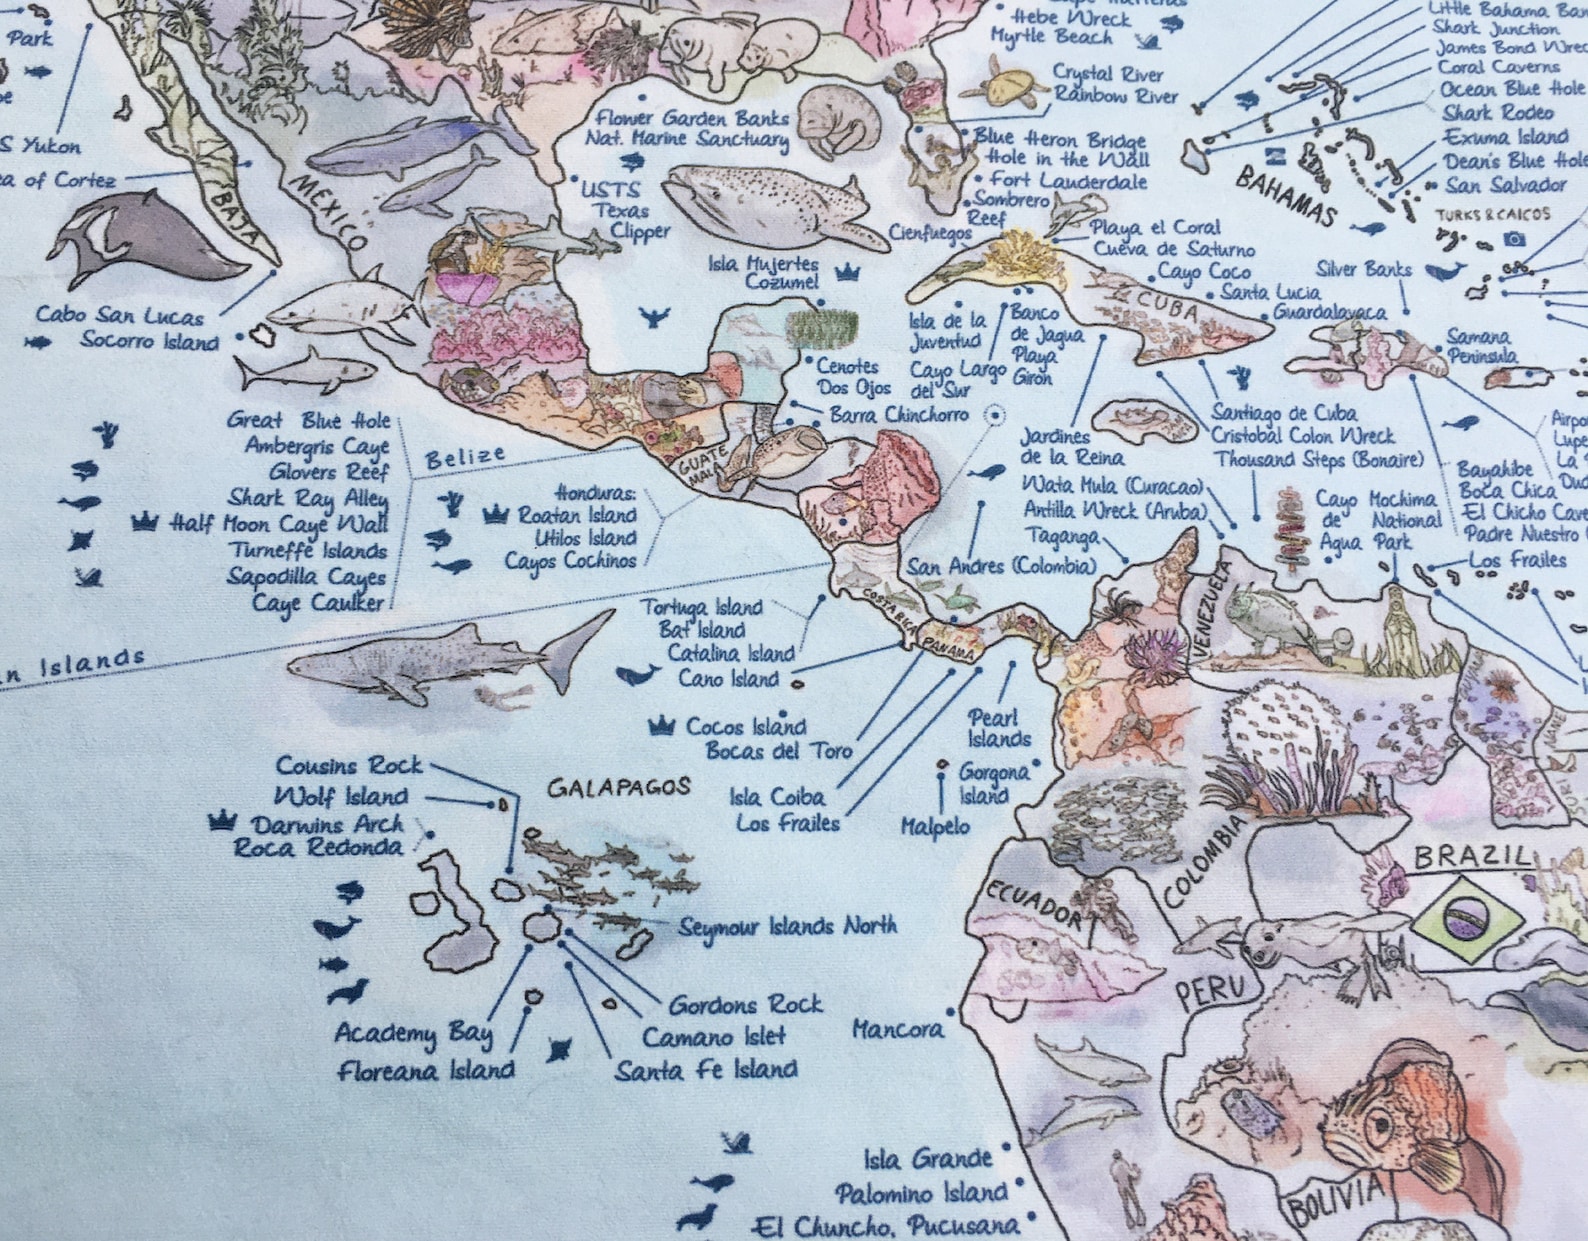 Park
S Yukon
ea of Cortez
BAJA
MEXICO
Cabo San Lucas
Socorro Island
Hebe Wreck
Myrtle Beach
Crystal River
Rainbow River
Flower Garden Banks
Nat. Marine Sanctuary
USTS
Texas
Clipper
Blue Heron Bridge
Hole in the Wall
Fort Lauderdale
Sombrero
Reef
Little Bahama Ban
Shark Junction
James Bond Wrec
Coral Caverns
Ocean Blue Hole
Shark Rodeo
Exuma Island
Dean's Blue Hole
San Salvador
BAHAMAS
TURKS & CAICOS
Silver Banks
Cienfuegos
Playa el Coral
Cueva de Saturno
Cayo Coco
Santa Lucia
Guardalavaca
CUBA
Isla Mujertes
Cozumel
Isla de la
Juventud
Cayo Largo
del Sur
Banco
de Jagua
Playa
Giron
Samana
Peninsula
Cenotes
Dos Ojos
Barra Chinchorro
Jardines
de la Reina
Santiago de Cuba
Cristobal Colon Wreck
Thousand Steps (Bonaire)
Wata Mula (Curacao)
Antilla Wreck (Aruba)
Taganga
San Andres (Colombia)
Cayo
de
Agua
Mochima
National
Park
Bayahibe
Boca Chica
El Chicho Cave
Padre Nuestro
Los Frailes
Great Blue Hole
Ambergris Caye
Glovers Reef
Shark Ray Alley
Half Moon Caye Wall
Turneffe Islands
Sapodilla Cayes
Caye Caulker
Belize
Honduras:
Roatan Island
Utilos Island
Cayos Cochinos
GUATE
MALA
COSTA RICA
PANAMA
VENEZUELA
n Islands
Tortuga Island
Bat Island
Catalina Island
Cano Island
Cocos Island
Bocas del Toro
Isla Coiba
Los Frailes
Pearl
Islands
Gorgona
Island
Malpelo
GALAPAGOS
Cousins Rock
Wolf Island
Darwins Arch
Roca Redonda
Seymour Islands North
Gordons Rock
Camano Islet
Santa Fe Island
Academy Bay
Floreana Island
COLOMBIA
BRAZIL
ECUADOR
PERU
BOLIVIA
Mancora
Isla Grande
Palomino Island
El Chuncho, Pucusana